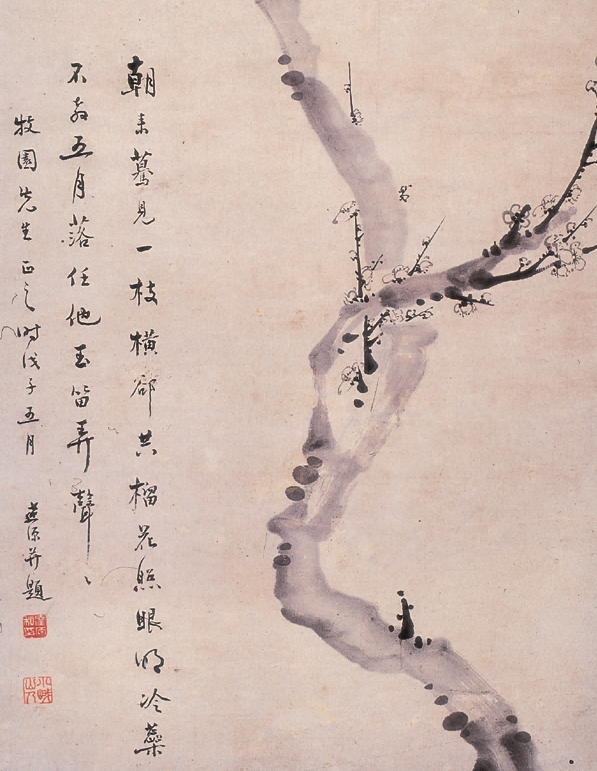 朝來驚見一枝橫卻共榴花照眼明冷蘂
不教五月落任他玉笛弄聲〻
牧園先生正之時戊子五月
源并題